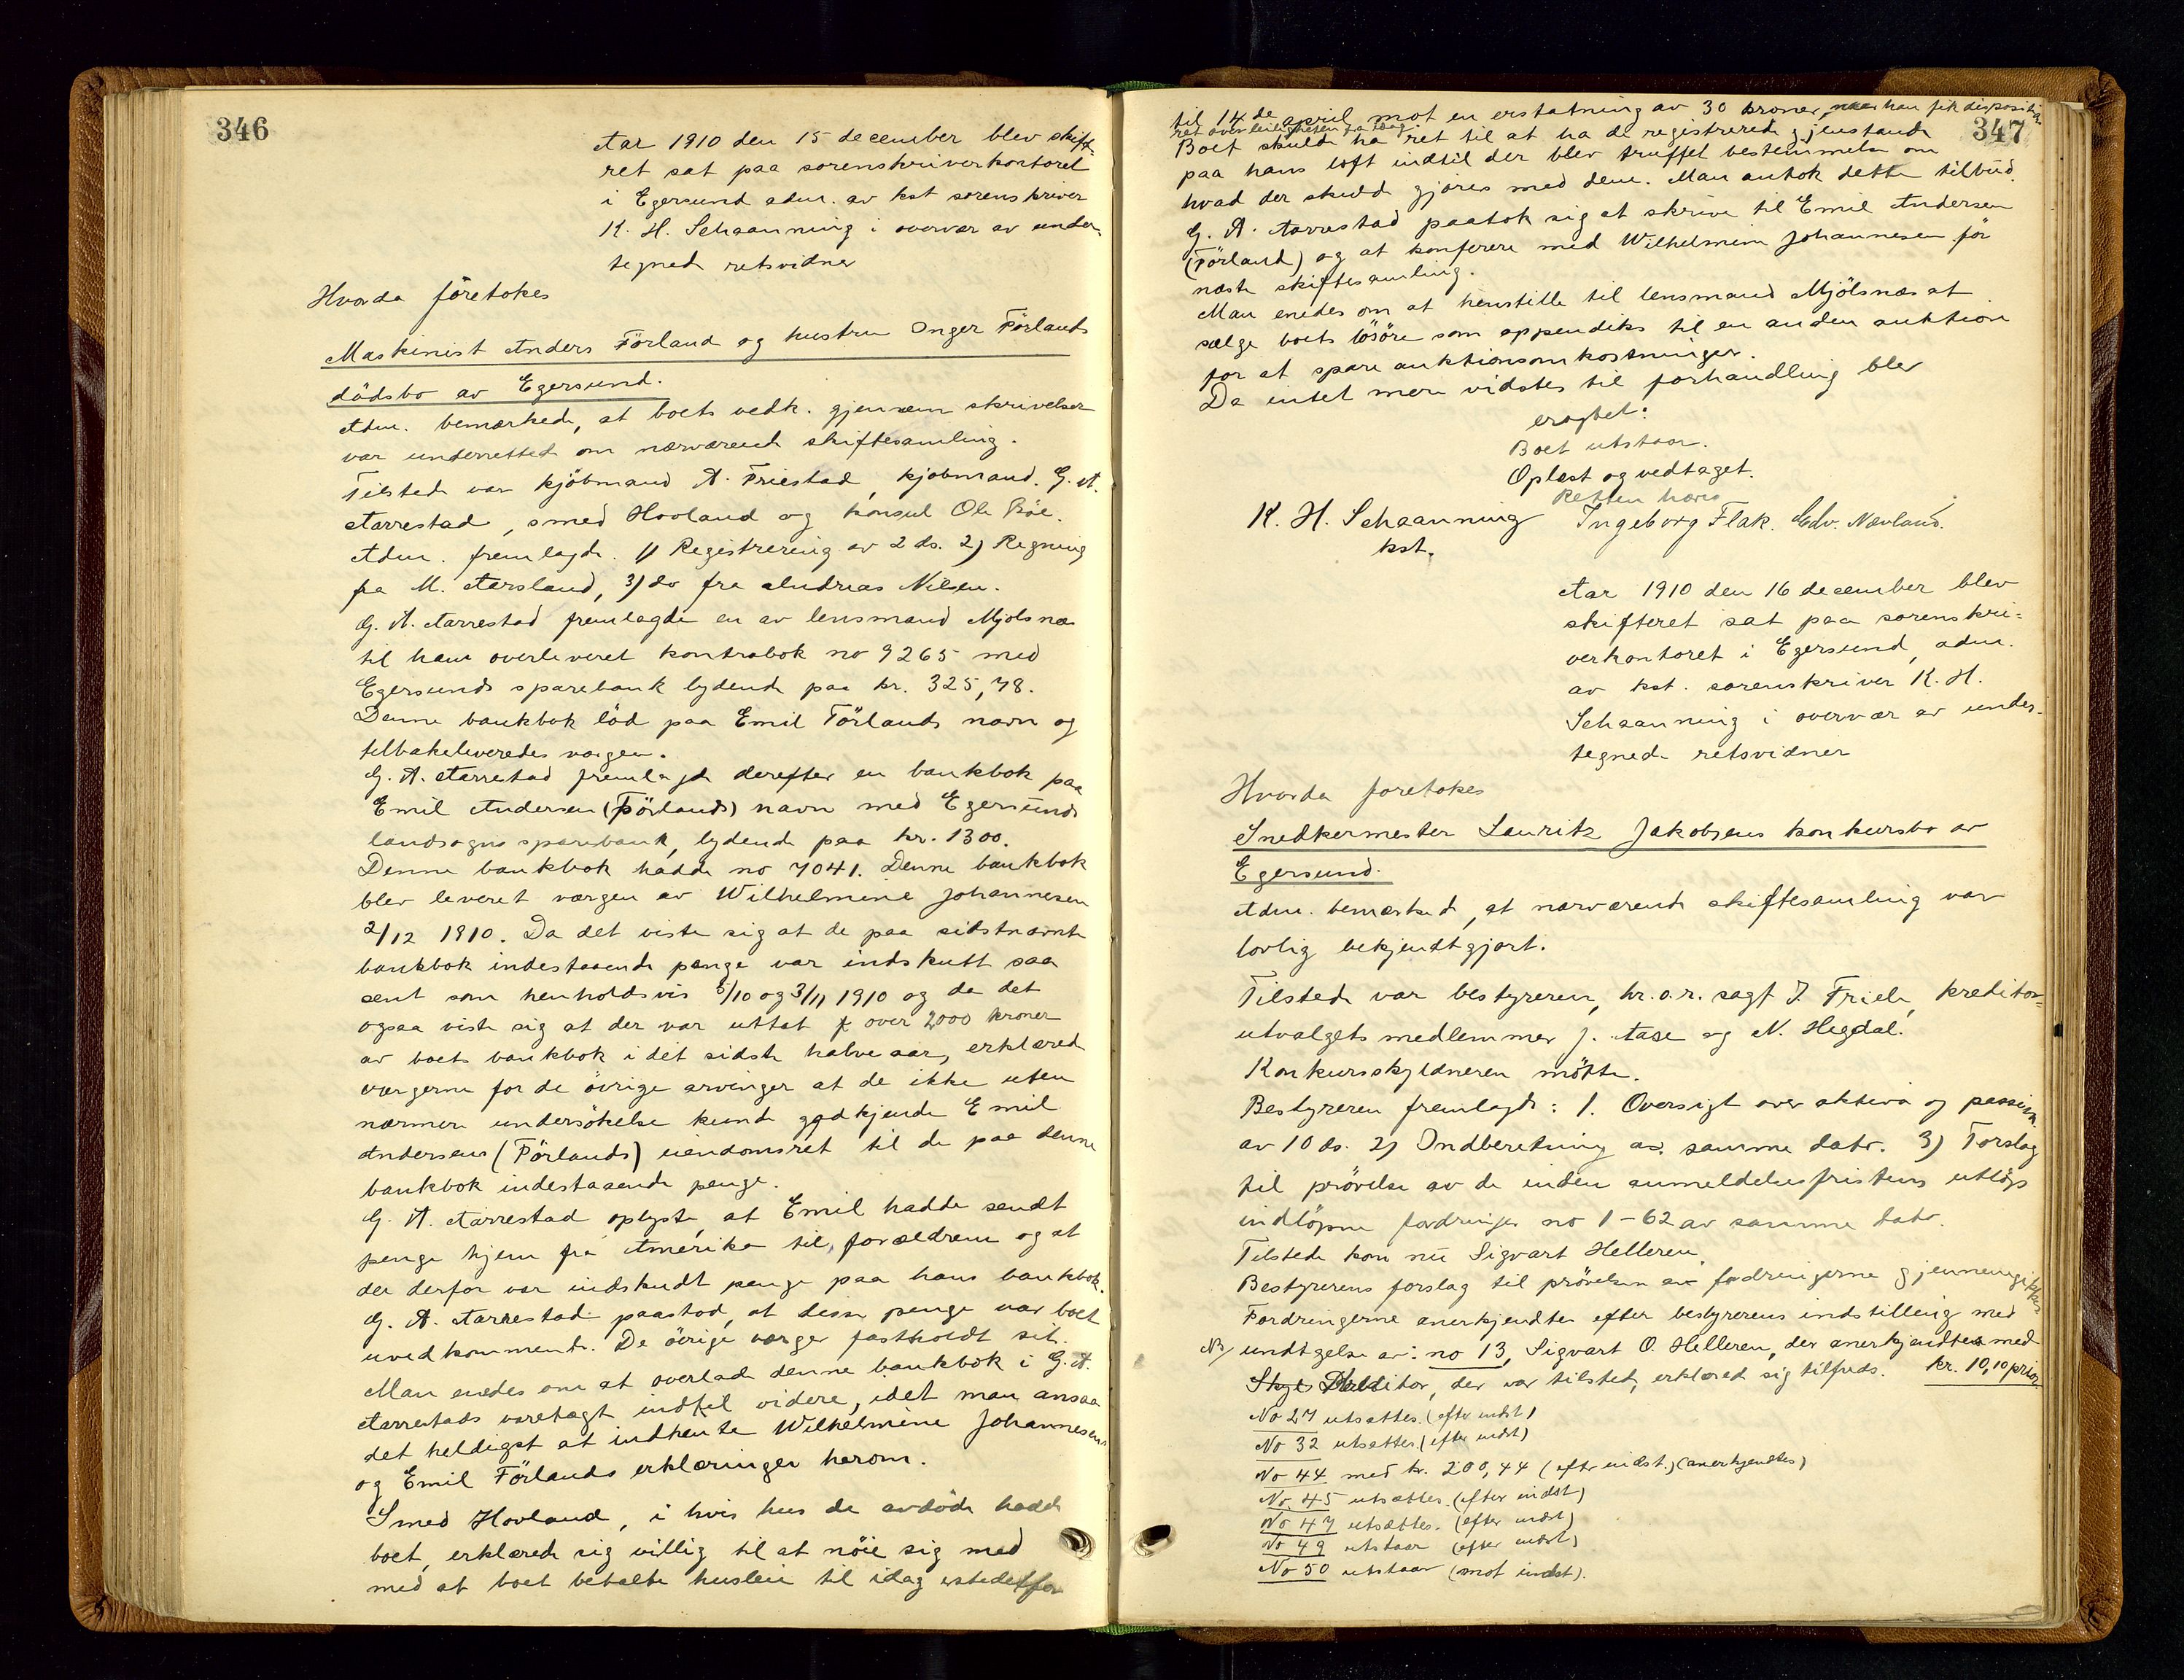 346
Aar 1910 den 15 december blev skift-
ret sat paa sorenskriverkontoret
i Egersund adm. av kst sorenskriver
K. H. Schaanning i overvær av under-
tegnede retsvidner
Hvorda företokes
Maskinist Anders Förland og hustru Inger Förlands
dödsbo av Egersund.
Adm. bemærkede, at boets vedk. gjennem skrivelser
var underrettet om nærværende skiftesamling.
Tilstede var kjöbmand A. Friestad, kjøbmand G. A.
Aarrestad, smed Hovland og konsul Ole Böe.
Adm. fremlagde 1) Registrering av 2 ds. 2) Regning
fra M. Aarsland, 3) do fra Andreas Nilsen.
G. A. Aarrestad fremlagde en av lensmand Mjølsnæs
til ham overleveret kontrabok no 9265 med
Egersunds sparebank lydende paa kr. 325,78.
Denne bankbok löd paa Emil Förlands navn og
tilbakeleveredes værgen.
G. A. Aarrestad fremlagde derefter en bankbok paa
Emil Andersen (Förlands) navn med Egersunds
landsogns sparebank, lydende paa kr. 1300.
Denne bankbok hadde no 7041. Denne bankbok
blev leveret værgen av Wilhelmine Johannesen
2/12 1910. Da det viste sig at de paa sidstnævnte
bankbok indestaaende penge var indskutt saa
sent som henholdsvis 5/10 og 3/11 1910 og da det
ogsaa viste sig at der var uttat over 2000 kroner
av boets bankbok i det sidste halve aar, erklærede
værgerne for de övrige arvinger at de ikke uten
nærmere undersökelse kunde godkjende Emil
Andersens (Förlands) eiendomsret til de paa denne
bankbok indestaaende penge.
G. A. Aarrestad oplyste, at Emil hadde sendt
penge hjem fra Amerika til forældrene og at
der derfor var indskudt penge paa hans bankbok.
G. A. Aarrestad paastod, at disse penge var boet
uvedkommende. De övrige værger fastholdt sit.
Man enedes om at overlade denne bankbok i G. A.
Aarrestads varetægt indtil videre, idet man ansaa
det heldigst at indhente Wilhelmine Johannesens
og Emil Förlands erklæringer herom.
Smed Hovland, i hvis hus de avdöde hadde
boet, erklærede sig villig til at nöie sig med
med at boet betalte husleie til idag istedetfor
347
til 14de april mot en erstatning av 30 kroner, naar han fik dispositions-
ret over leiligheten fra idag.
Boet skulde ha ret til at ha de registrerede gjenstande
paa hans loft indtil der blev truffet bestemmelse om
hvad der skulde gjöres med dem. Man antok dette tilbud.
G. A. Aarrestad paatok sig at skrive til Emil Andersen
(Förland) og at konferere med Wilhelmine Johannesen för
næste skiftesamling.
Man enedes om at henstille til lensmand Mjölsnæs at
sælge boets lösöre som appendiks til en anden auktion
for at spare auktionsomkostninger.
Da intet mere vidstes til forhandling blev
eragtet:
Boet utstaar.
Oplæst og vedtaget.
Retten hævet
K. H. Schaanning Ingeborg Flak. Edv. Nævland.
kst.
Aar 1910 den 16 december blev
skifteret sat paa sorenskri-
verkontoret i Egersund, adm.
av kst. sorenskriver K. H.
Schaanning i overvær av under-
tegnede retsvidner
Hvorda foretokes
Snedkermester Lauritz Jakobsens konkursbo av
Egersund.
Adm. bemærked, at nærværende skiftesamling var
lovlig bekjendtgjort.
Tilstede var bestyreren, hr. o.r. sagf J. Friele, kreditor-
utvalgets medlemmer J. Aase og N. Hegdal.
Konkursskyldneren mötte.
Bestyreren fremlagde: 1. Oversigt over aktiva og passiva
av 10 ds. 2) Indberetning av samme dato. 3) Forslag
til prövelse av de inden anmeldelsesfristens utlöp
indlöpne fordringer no 1-62 av samme dato.
Tilstede kom nu Sigvart Helleren.
Bestyrerens forslag til prövelsen av fordringerne gjennemgikkes
Fordringerne anerkjendtes efter bestyrerens indstilling med
NB/ undtagelse av: no 13, Sigvart O. Helleren, der anerkjendtes med
kr. 10,10 prior.
Kreditor, der var tilstede, erklæred sig tilfreds.
No 27 utsættes. (efter indst)
No 32 utsættes. (efter indst)
No 44 med kr. 200,44 (efter indst.) (anerkjendtes)
No 45 utsættes. (efter indst)
No 47 utsættes. (efter indst)
No 49 utstaar (efter indst)
No 50 utstaar (mot indst).